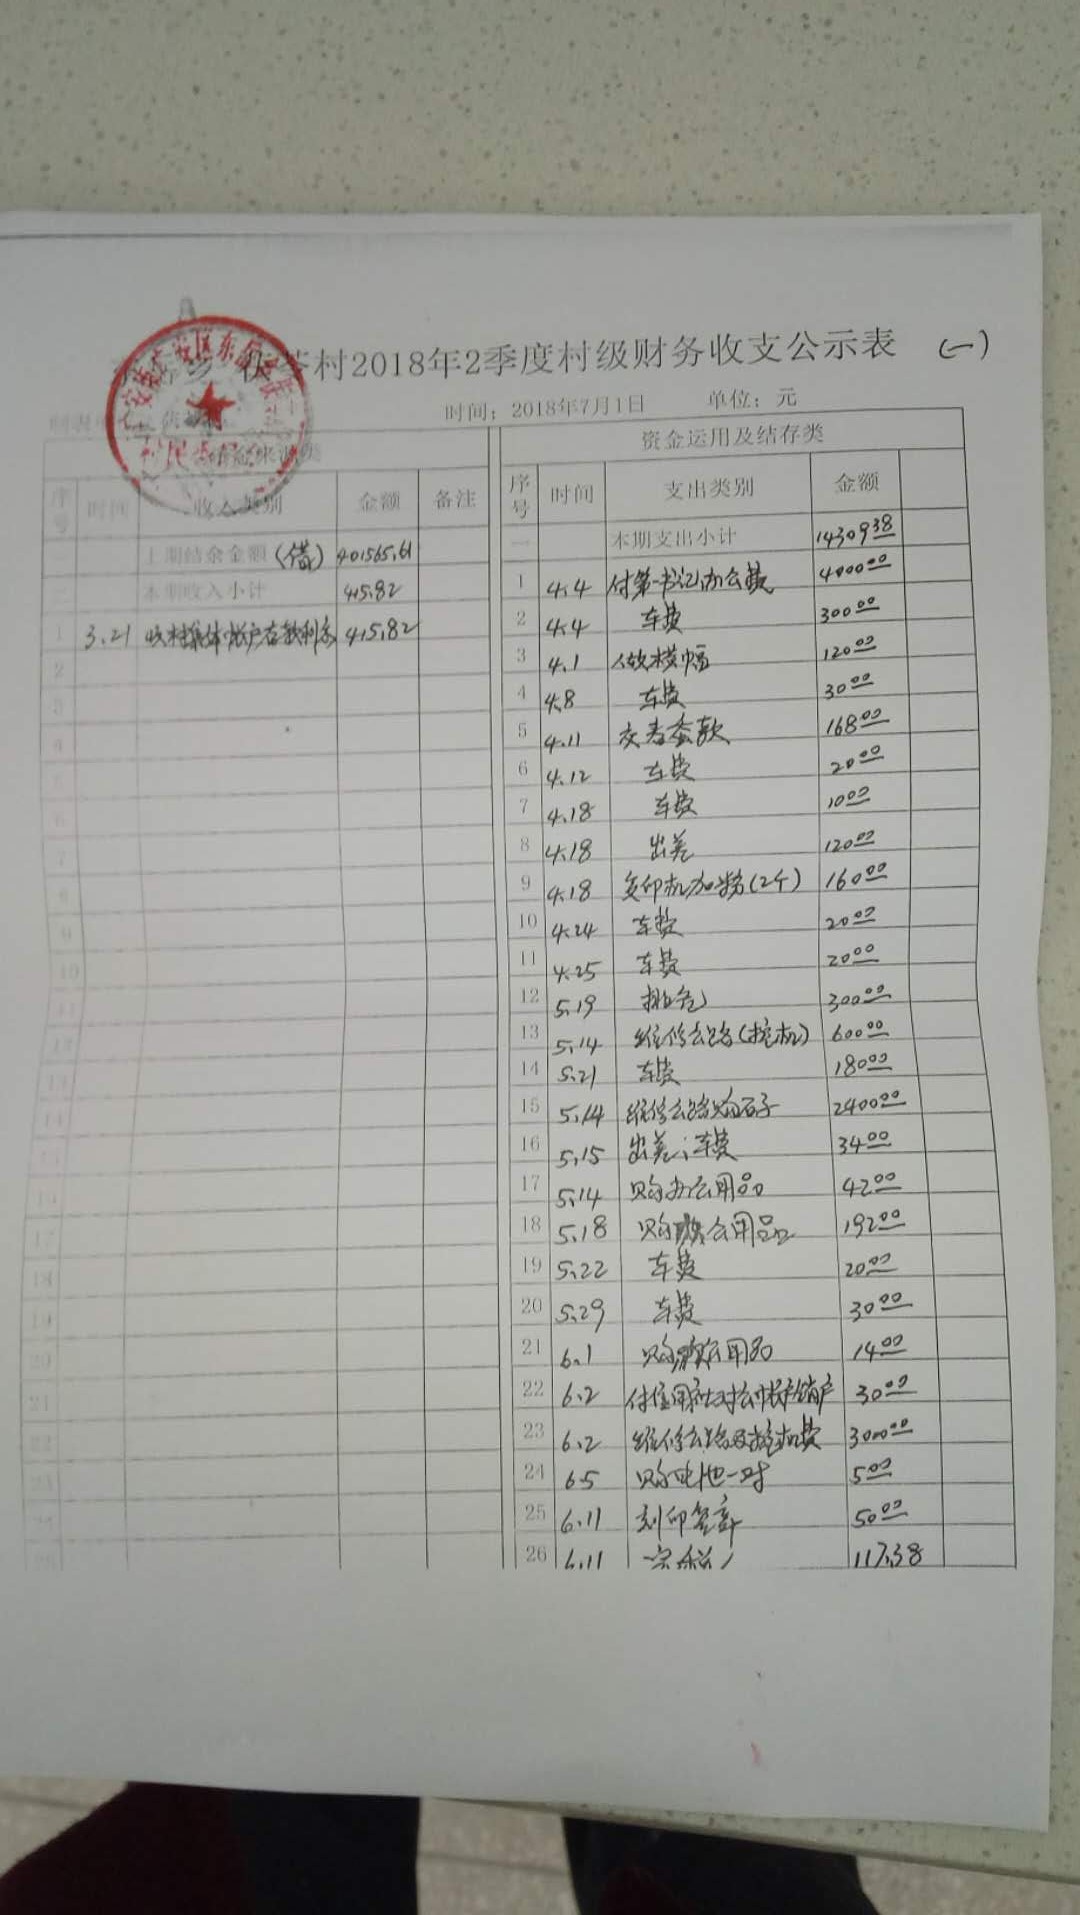 村2018年2季度村级财务收支公示表 (一)
时间：2018年7月1日 单位：元
资金来源类 资金运用及结存类
序号 时间 收入类别 金额 备注 序号 时间 支出类别 金额
一 上期结余金额(借) 401565.61 一 本期支出小计 14309.38
本期收入小计 415.82 1 4.4 付第一书记办公费 4000.00
1 3.21 收村集体帐户存款利息 415.82 2 4.4 车费 300.00
2 3 4.1 做横幅 120.00
3 4 4.8 车费 30.00
4 5 4.11 168.00
5 6 4.12 车费 20.00
6 7 4.18 车费 10.00
7 8 4.18 出差 120.00
8 9 4.18 复印机加粉(2个) 160.00
9 10 4.24 车费 20.00
10 11 4.25 车费 20.00
11 12 5.19 排危 300.00
12 13 5.14 维修公路(挖机) 600.00
13 14 5.21 车费 180.00
14 15 5.14 维修公路购石子 2400.00
15 16 5.15 出差、车费 34.00
16 17 5.14 购办公用品 42.00
17 18 5.18 购办公用品 192.00
18 19 5.22 车费 20.00
19 20 5.29 车费 30.00
20 21 6.1 购办公用品 14.00
21 22 6.2 付信用社对公帐户销户 30.00
22 23 6.2 维修公路及挖机费 3000.00
23 24 6.5 购电池一对 5.00
24 25 6.11 刻印签章 50.00
25 26 6.11 117.38